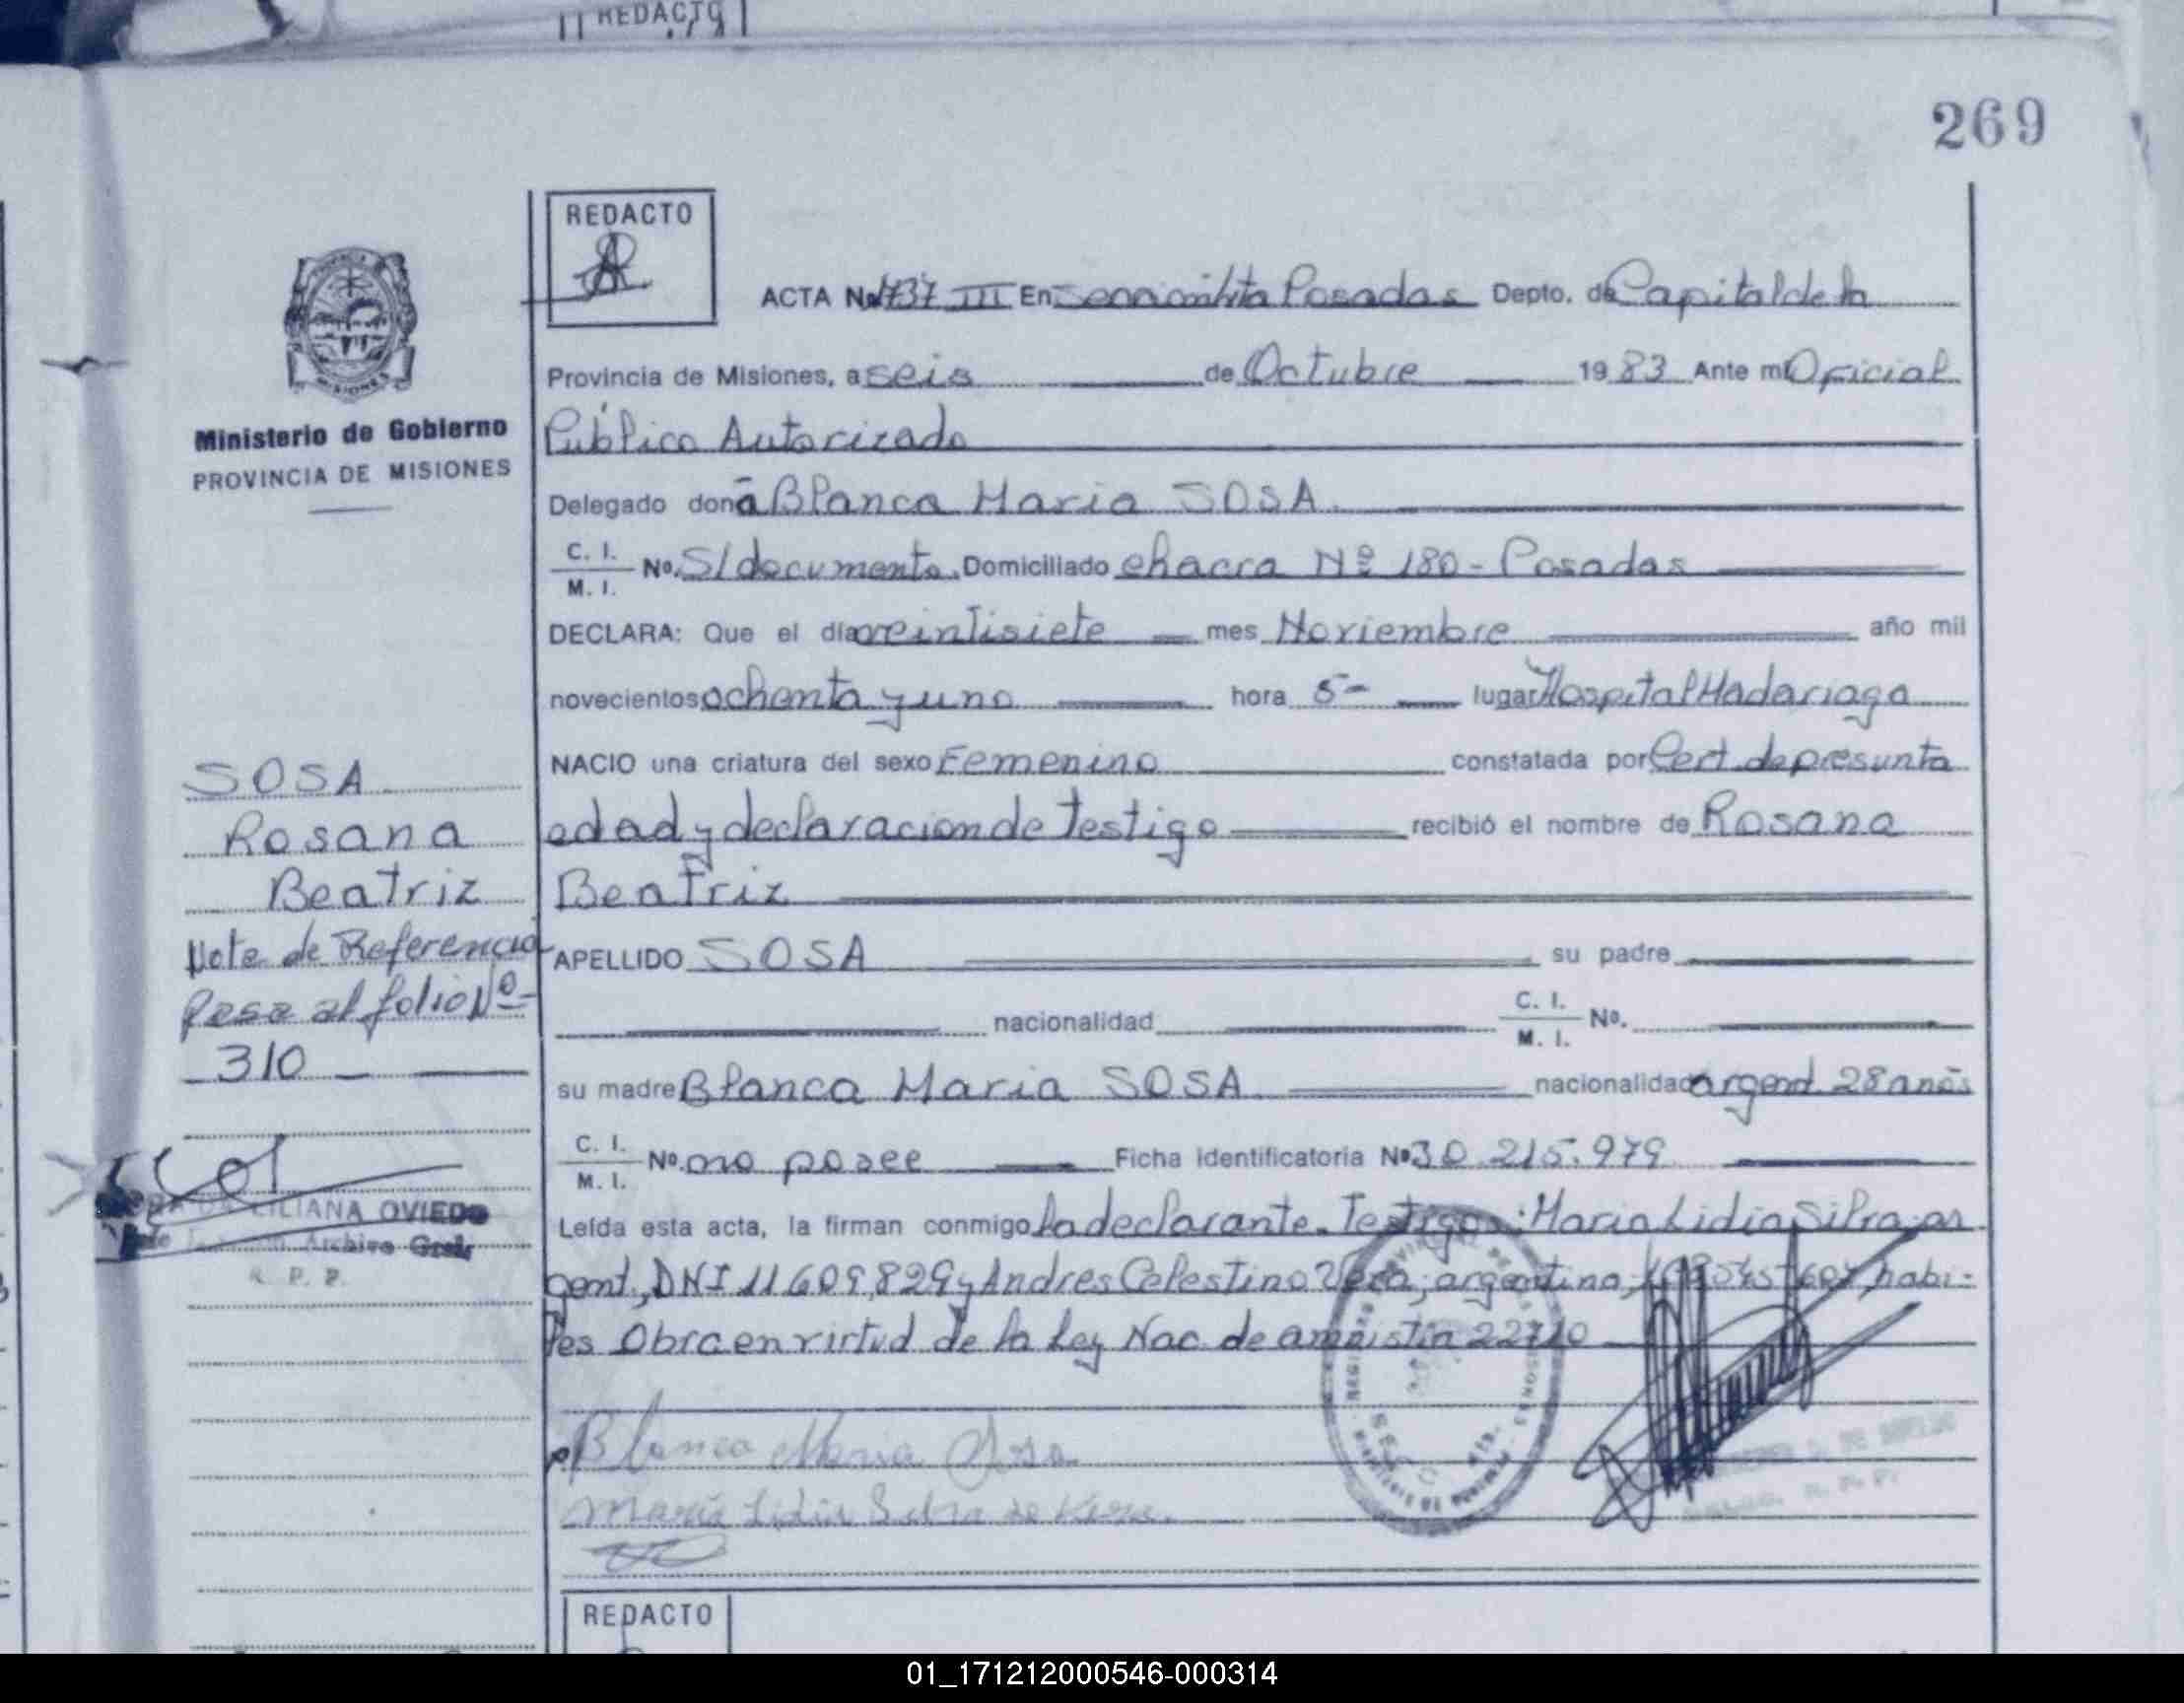 REDACTO
269
REDACTO
ACTA No 1737 III En Posadas Depto. de Capital de la
Provincia de Misiones, a seis de Octubre 1983 Ante mí Oficial
Público Autorizado
Ministerio de Gobierno
PROVINCIA DE MISIONES
Delegado doña Blanca Maria SOSA.
C. I.
M. I.
No. S/documento. Domiciliado chacra Nº 180 - Posadas
DECLARA: Que el día veintisiete mes Noviembre año mil
novecientos ochenta y uno hora 5- lugar Hospital Madariaga
NACIO una criatura del sexo Femenino constatada por Cert. de presunta
edad y declaracion de Testigo recibió el nombre de Rosana
Beatriz
SOSA
Rosana
Beatriz
Nota de Referencia
Pasa al folio Nº-
310
APELLIDO SOSA su padre
nacionalidad C. I.
M. I.
No.
su madre Blanca Maria SOSA nacionalidad argent. 28 años
C. I.
M. I.
No. no posee Ficha identificatoria No 30.215.979
LILIANA OVIEDO
Archivo Gral.
R. P. P.
Leída esta acta, la firman conmigo la declarante. Testigos: Maria Lidia Silva, ar
gent, DNI 11.609.829 y Andres Celestino Vera, argentino, habi-
les Obra en virtud de la Ley Nac. de amnistia 22710
Blanca Maria Sosa
Maria Lidia Silva de Vera
REDACTO
01_171212000546-000314